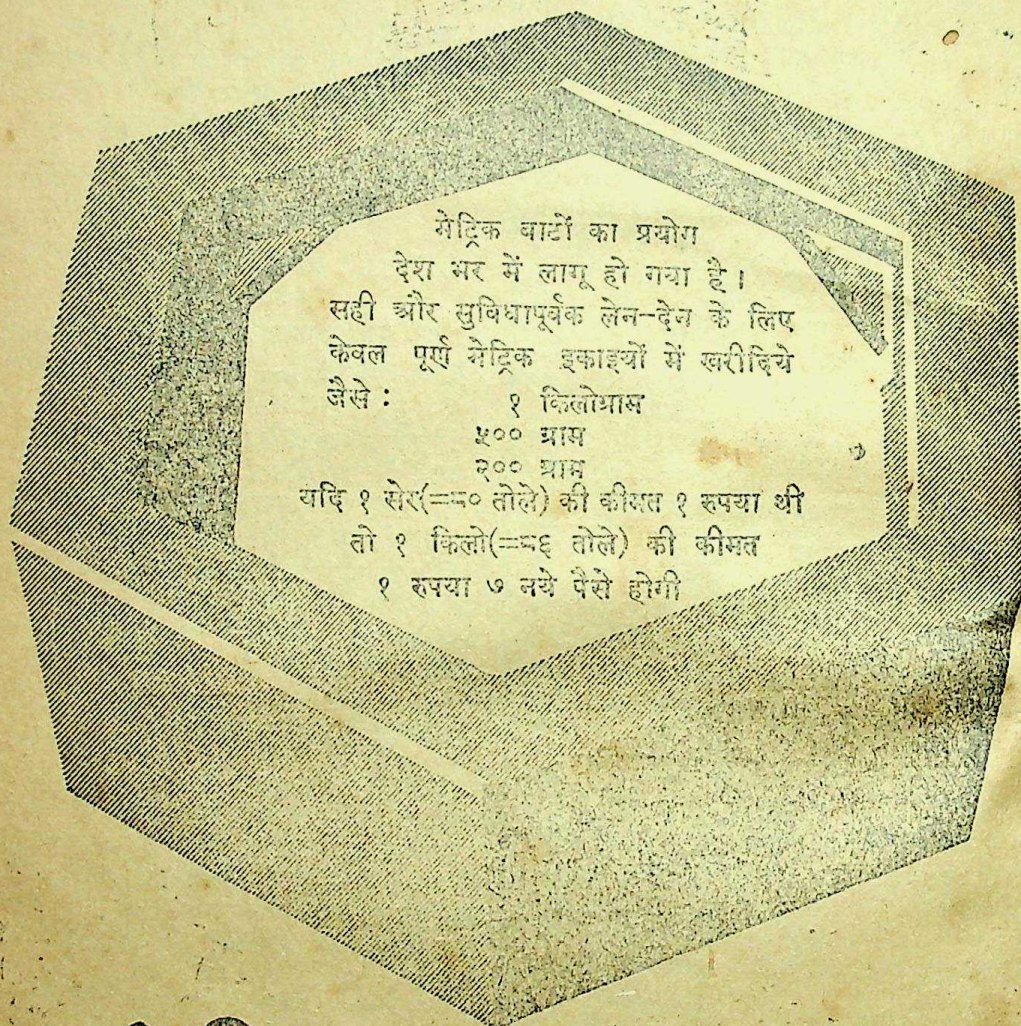 मेट्रिक बाटों का प्रयोग
देश भर में लागू हो गया है।
सही और सुविधापूर्वक लेन-देन के लिए
केवल पूर्ण मेट्रिक इकाइयों में खरीदिये
जैसे : १ किलोग्राम
५०० ग्राम
२०० ग्राम
यदि १ सेर(=८० तोले) की कीमत १ रुपया थी
तो १ किलो(=८६ तोले) की कीमत
१ रुपया ७ नये पैसे होगी